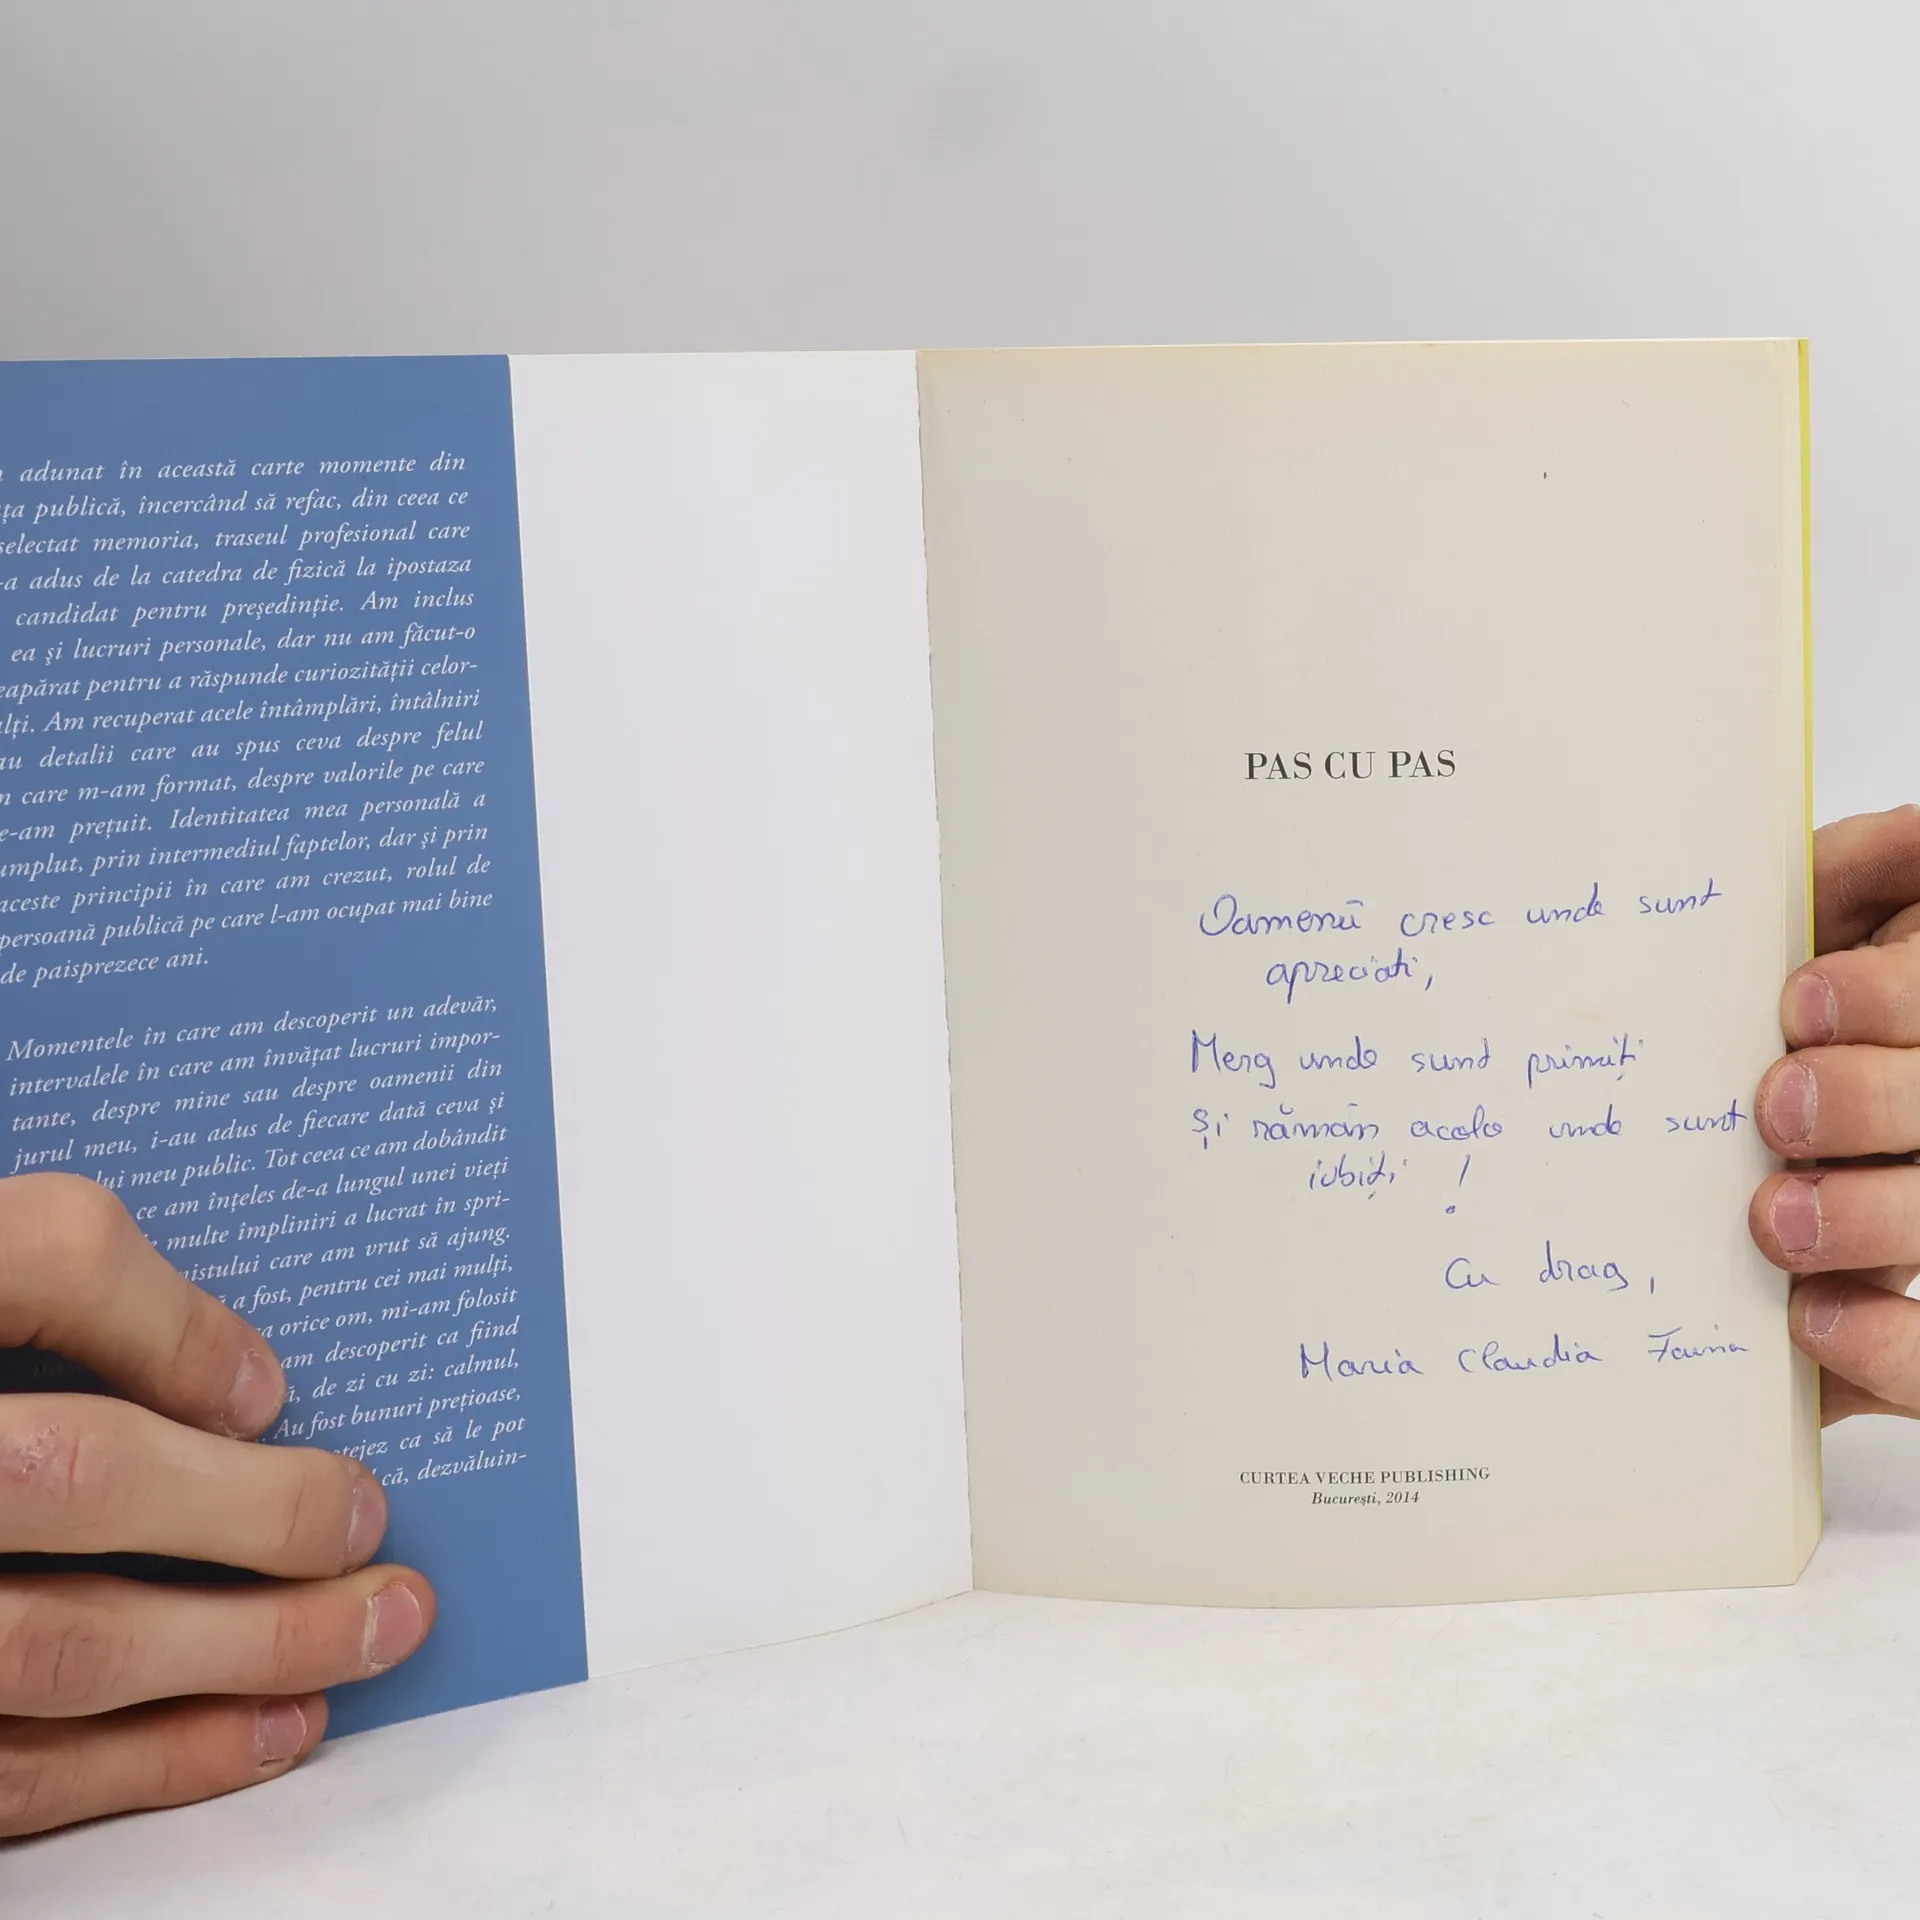 adunat în această carte momente din
ța publică, încercând să refac, din ceea ce
selectat memoria, traseul profesional care
-a adus de la catedra de fizică la ipostaza
candidat pentru președinție. Am inclus
ea și lucruri personale, dar nu am făcut-o
eapărat pentru a răspunde curiozității celor-
lți. Am recuperat acele întâmplări, întâlniri
au detalii care au spus ceva despre felul
n care m-am format, despre valorile pe care
e-am prețuit. Identitatea mea personală a
umplut, prin intermediul faptelor, dar și prin
aceste principii în care am crezut, rolul de
persoană publică pe care l-am ocupat mai bine
de paisprezece ani.
Momentele în care am descoperit un adevăr,
intervalele în care am învățat lucruri impor-
tante, despre mine sau despre oamenii din
jurul meu, i-au adus de fiecare dată ceva și
lui meu public. Tot ceea ce am dobândit
ce am înțeles de-a lungul unei vieți
multe împliniri a lucrat în spri-
nistului care am vrut să ajung.
a fost, pentru cei mai mulți,
ca orice om, mi-am folosit
am descoperit ca fiind
ă, de zi cu zi: calmul,
Au fost bunuri prețioase,
otejez ca să le pot
că, dezvăluin-
PAS CU PAS
Oamenii cresc unde sunt
apreciati,
Merg unde sunt primiți
Și rămân acolo unde sunt
iubiți !
Cu drag,
Maria Claudia
CURTEA VECHE PUBLISHING
București, 2014